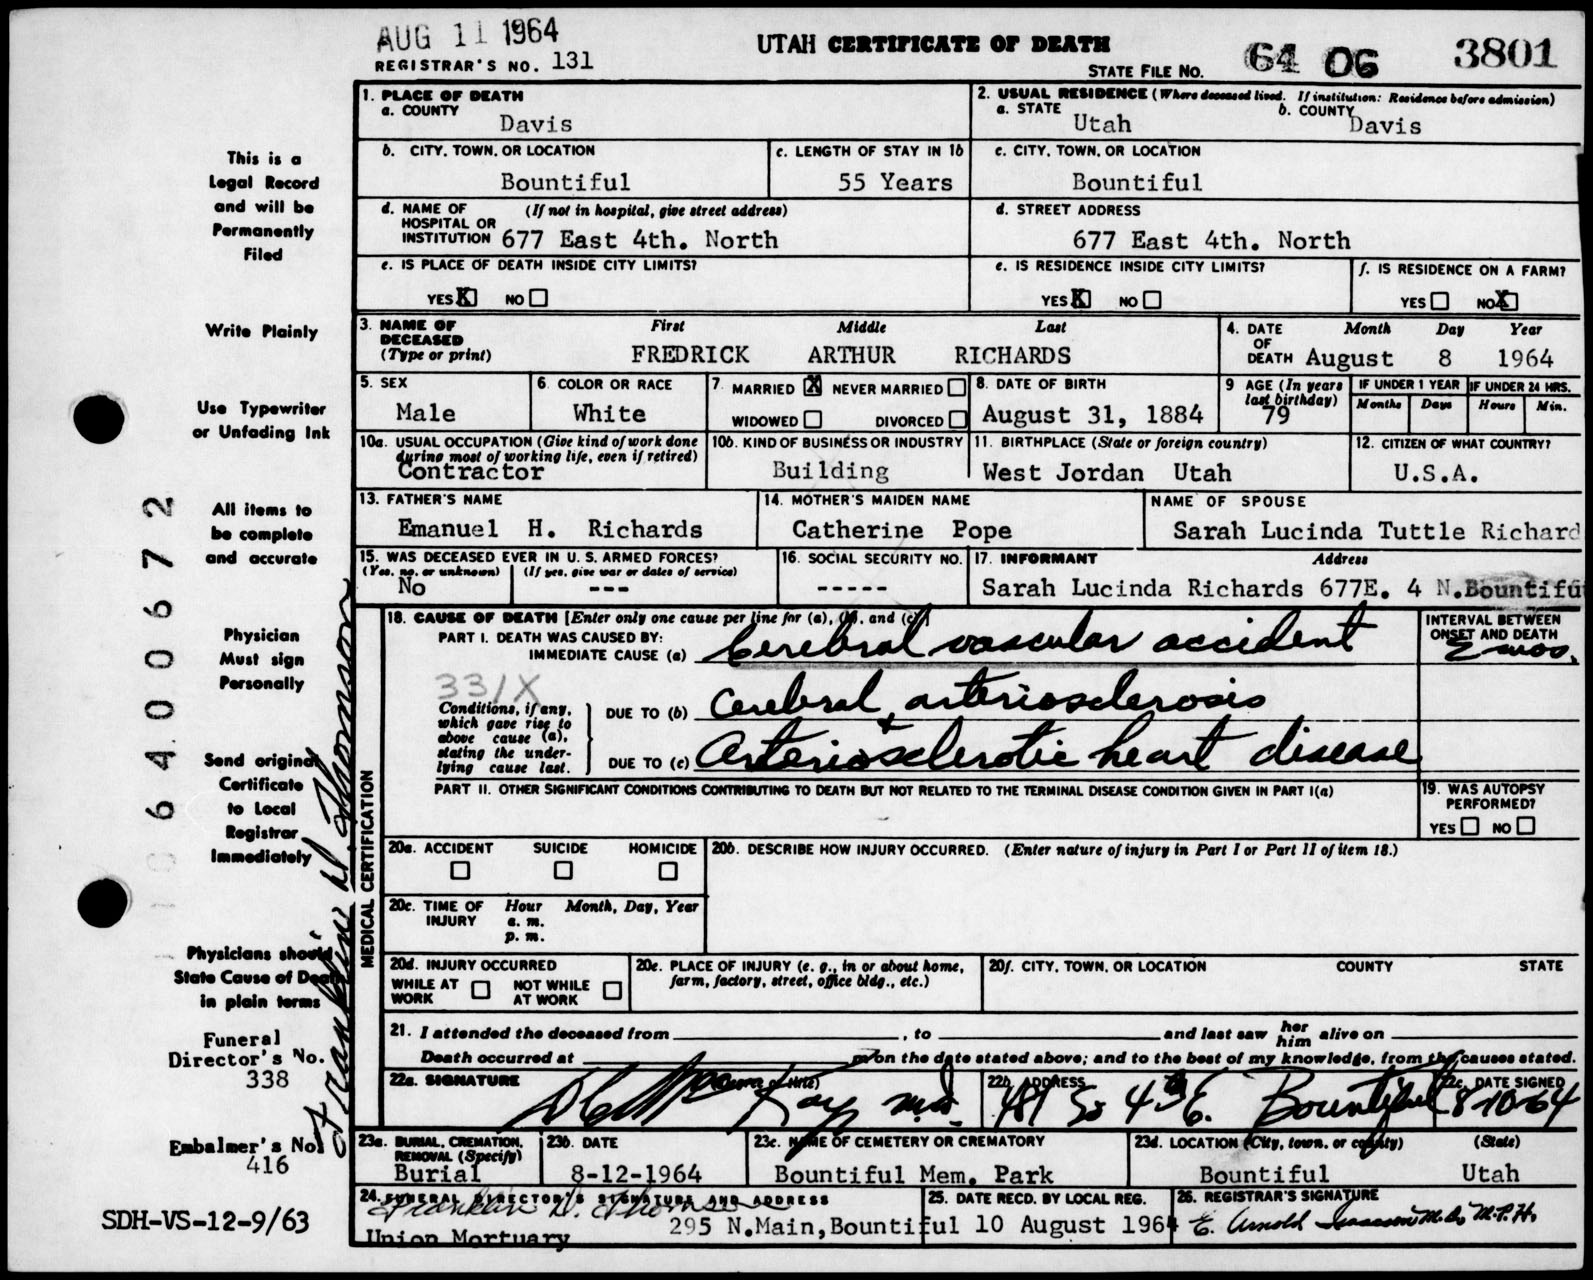 AUG 11 1964
REGISTRAR'S NO. 131
UTAH CERTIFICATE OF DEATH
STATE FILE NO. 64 06 3801
This is a
Legal Record
and will be
Permanently
Filed
Write Plainly
Use Typewriter
or Unfading Ink
All items to
be complete
and accurate
Physician
Must sign
Personally
Send original
Certificate
to Local
Registrar
Immediately
Physicians should
State Cause of Death
in plain terms
Funeral
Director's No.
338
Embalmer's No.
416
SDH-VS-12-9/63
6400672
Franklin D. Thomson
1. PLACE OF DEATH
a. COUNTY
Davis
2. USUAL RESIDENCE (Where deceased lived. If institution: Residence before admission)
a. STATE b. COUNTY
Utah Davis
b. CITY, TOWN, OR LOCATION
Bountiful
c. LENGTH OF STAY IN 1b
55 Years
c. CITY, TOWN, OR LOCATION
Bountiful
d. NAME OF (If not in hospital, give street address)
HOSPITAL OR
INSTITUTION 677 East 4th. North
d. STREET ADDRESS
677 East 4th. North
e. IS PLACE OF DEATH INSIDE CITY LIMITS?
YES X NO
e. IS RESIDENCE INSIDE CITY LIMITS?
YES X NO
f. IS RESIDENCE ON A FARM?
YES NO X
3. NAME OF First Middle Last
DECEASED
(Type or print) FREDRICK ARTHUR RICHARDS
4. DATE Month Day Year
OF
DEATH August 8 1964
5. SEX
Male
6. COLOR OR RACE
White
7. MARRIED X NEVER MARRIED
WIDOWED DIVORCED
8. DATE OF BIRTH
August 31, 1884
9 AGE (In years
last birthday)
79
IF UNDER 1 YEAR
Months Days
IF UNDER 24 HRS.
Hours Min.
10a. USUAL OCCUPATION (Give kind of work done
during most of working life, even if retired)
Contractor
10b. KIND OF BUSINESS OR INDUSTRY
Building
11. BIRTHPLACE (State or foreign country)
West Jordan Utah
12. CITIZEN OF WHAT COUNTRY?
U.S.A.
13. FATHER'S NAME
Emanuel H. Richards
14. MOTHER'S MAIDEN NAME
Catherine Pope
NAME OF SPOUSE
Sarah Lucinda Tuttle Richard
15. WAS DECEASED EVER IN U. S. ARMED FORCES?
(Yes, no, or unknown) (If yes, give war or dates of service)
No ---
16. SOCIAL SECURITY NO.
-----
17. INFORMANT Address
Sarah Lucinda Richards 677E. 4 N. Bountifu
MEDICAL CERTIFICATION
18. CAUSE OF DEATH [Enter only one cause per line for (a), (b), and (c)]
PART I. DEATH WAS CAUSED BY:
IMMEDIATE CAUSE (a) Cerebral vascular accident
INTERVAL BETWEEN
ONSET AND DEATH
2 mos.
331X
Conditions, if any,
which gave rise to
above cause (a),
stating the under-
lying cause last.
DUE TO (b) Cerebral arteriosclerosis
+
DUE TO (c) Arteriosclerotic heart disease
PART II. OTHER SIGNIFICANT CONDITIONS CONTRIBUTING TO DEATH BUT NOT RELATED TO THE TERMINAL DISEASE CONDITION GIVEN IN PART I(a)
19. WAS AUTOPSY
PERFORMED?
YES NO
20a. ACCIDENT SUICIDE HOMICIDE
20b. DESCRIBE HOW INJURY OCCURRED. (Enter nature of injury in Part I or Part II of item 18.)
20c. TIME OF Hour Month, Day, Year
INJURY a. m.
p. m.
20d. INJURY OCCURRED
WHILE AT NOT WHILE
WORK AT WORK
20e. PLACE OF INJURY (e. g., in or about home,
farm, factory, street, office bldg., etc.)
20f. CITY, TOWN, OR LOCATION COUNTY STATE
21. I attended the deceased from , to and last saw her him alive on
Death occurred at m on the date stated above; and to the best of my knowledge, from the causes stated.
22a. SIGNATURE (Degree or title)
Kay M.D.
22b. ADDRESS
481 So 4th E. Bountiful
22c. DATE SIGNED
8-10-64
23a. BURIAL, CREMATION,
REMOVAL (Specify)
Burial
23b. DATE
8-12-1964
23c. NAME OF CEMETERY OR CREMATORY
Bountiful Mem. Park
23d. LOCATION (City, town, or county) (State)
Bountiful Utah
24. FUNERAL DIRECTOR'S SIGNATURE AND ADDRESS
Franklin D. Thomson
295 N.Main, Bountiful
Union Mortuary
25. DATE RECD. BY LOCAL REG.
10 August 1964
26. REGISTRAR'S SIGNATURE
E. Arnold Isaacson M.D., M.P.H.